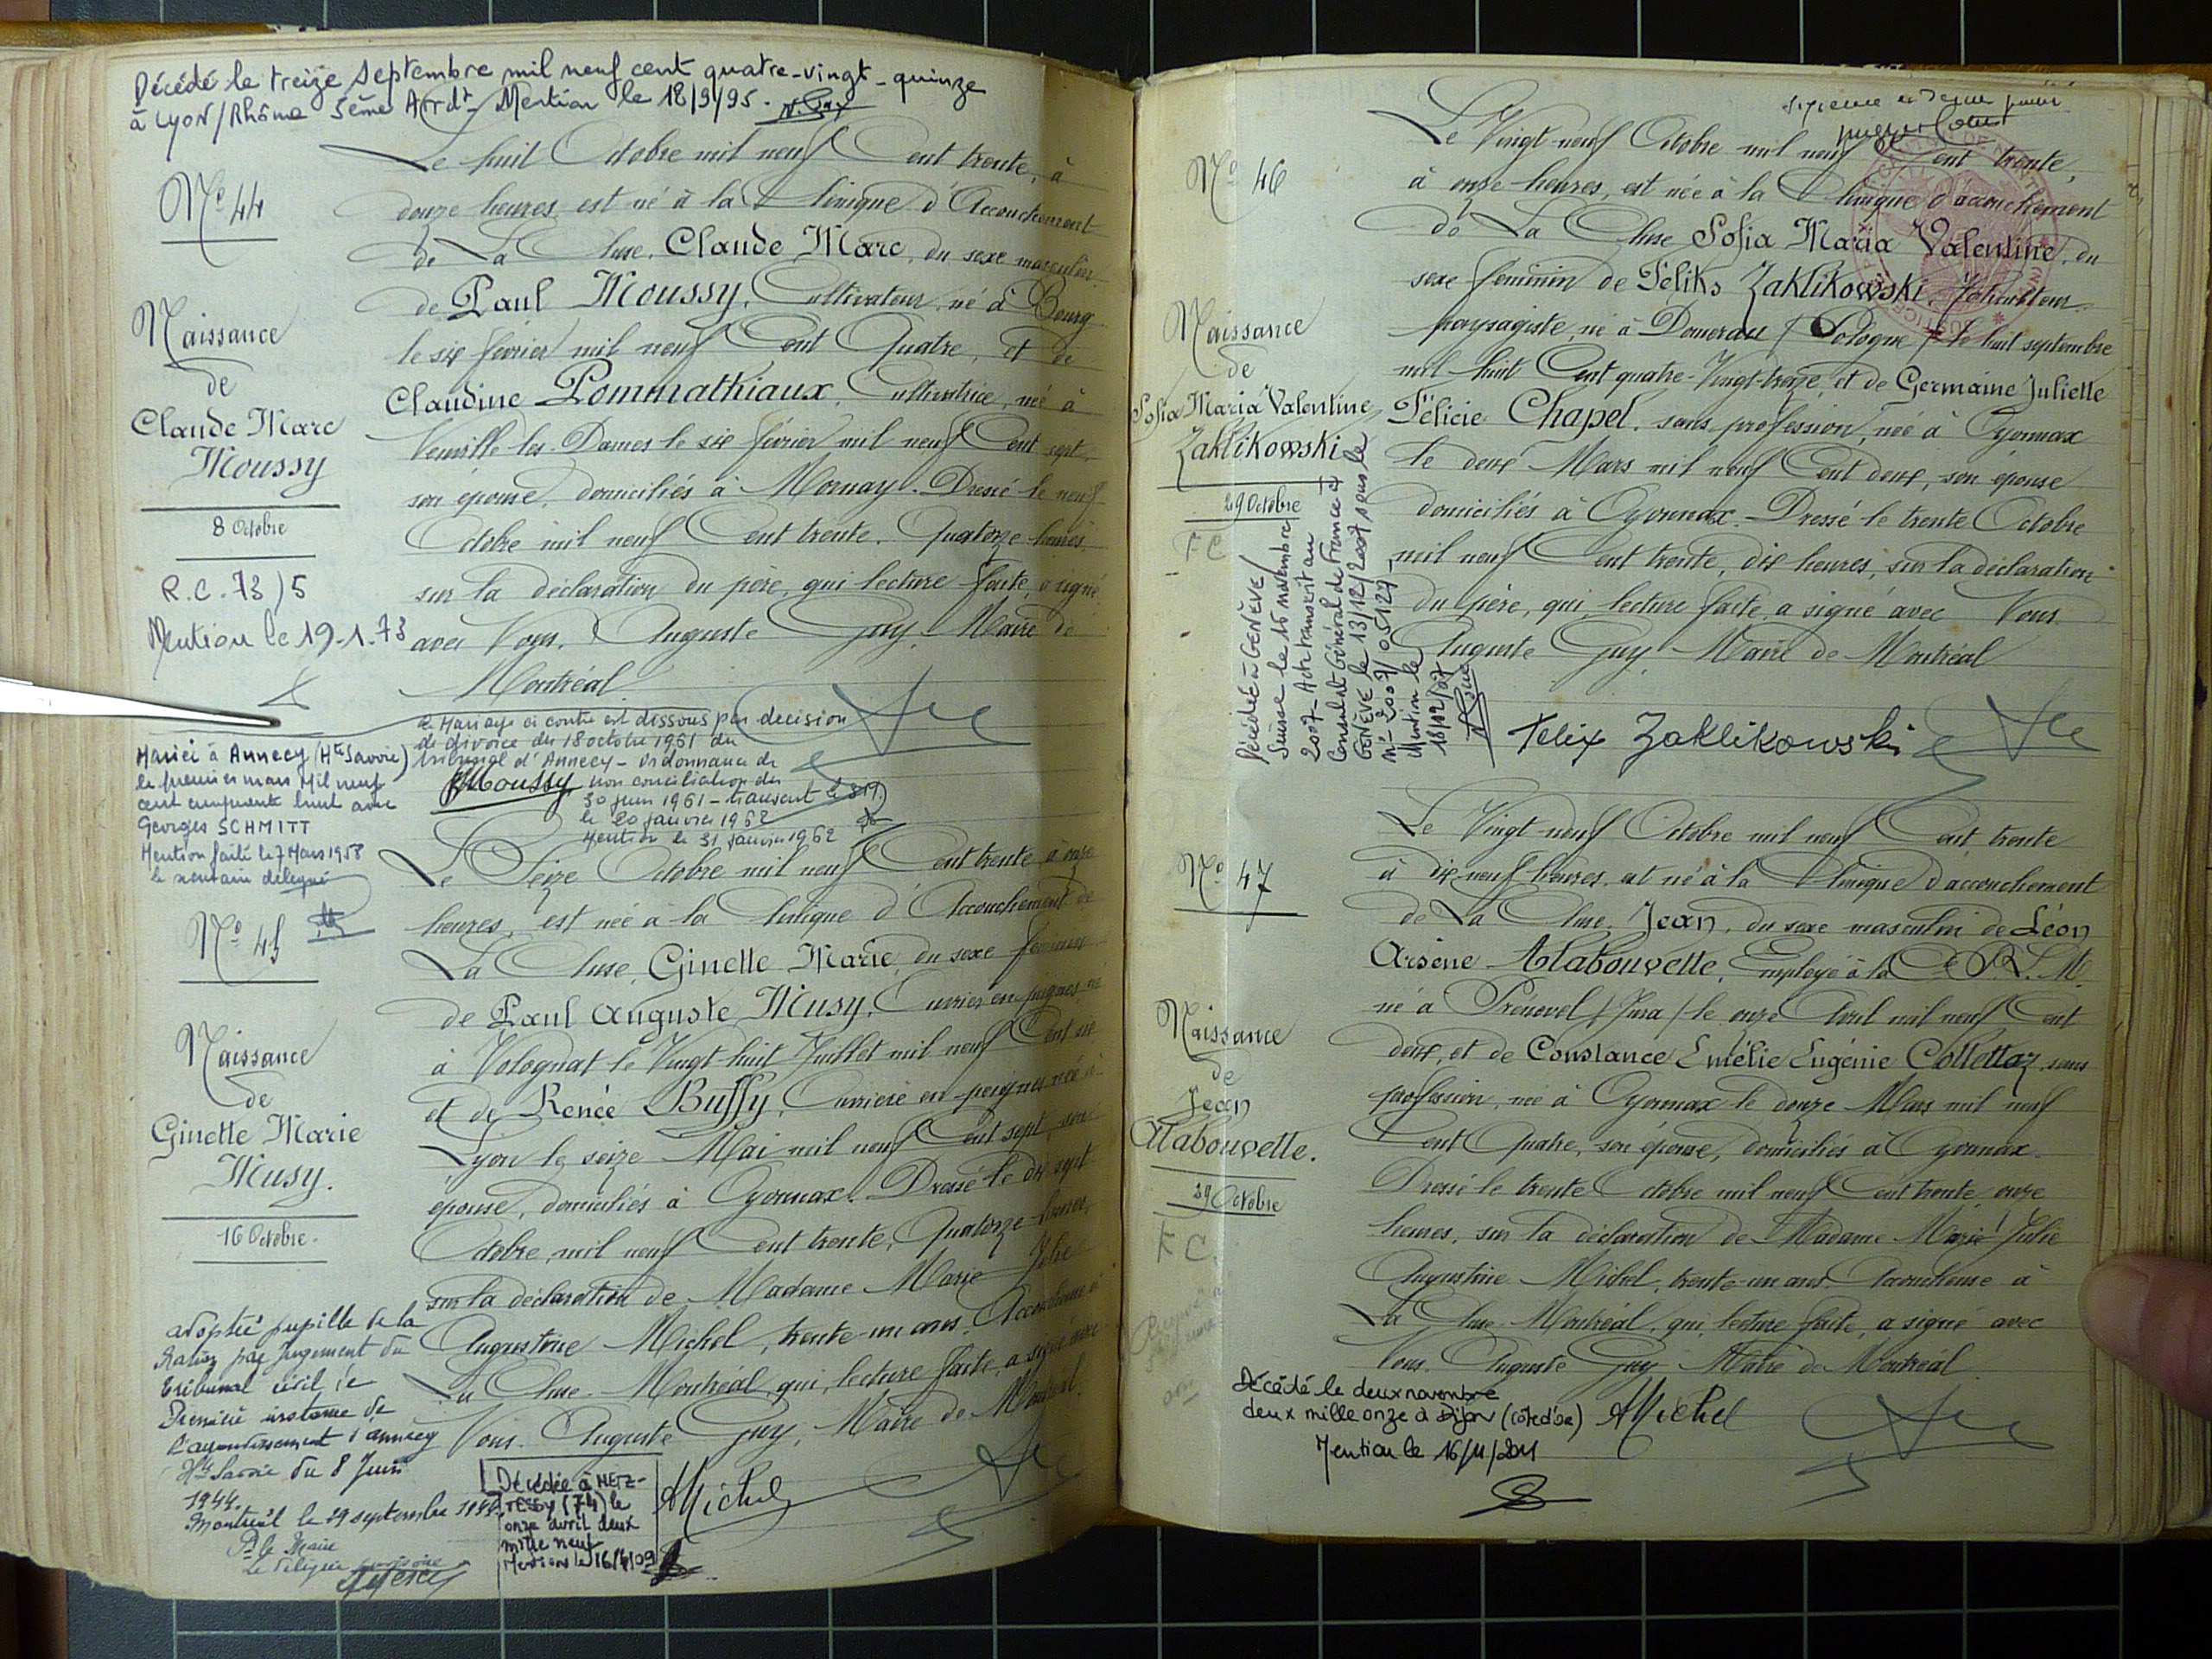 Décédé le treize Septembre mil neuf cent quatre-vingt-quinze
à LYON/Rhône 5ème Arrdt Mention le 18/9/95.
No 44
Naissance
de
Claude Marc
Moussy
8 Octobre
R.C. 73/5
Mention le 19-1.73
Le huit Octobre mil neuf Cent trente, à
douze heures, est né à la Clinique d'Accouchement
de La Cluse, Claude Marc, du sexe masculin
de Paul Moussy, Cultivateur, né à Bourg
le six février mil neuf Cent Quatre, et de
Claudine Pommathiaux, Cultivatrice, née à
les-Dames le six février mil neuf Cent sept,
son épouse, domiciliés à Mornay. Dressé le neuf
Octobre mil neuf Cent trente, Quatorze heures,
sur la déclaration du père, qui lecture faite, a signé
avec Nous, Auguste Guy, Maire de
Montréal
Moussy
Mariée à Annecy (Hte Savoie)
le premier mars Mil neuf
cent cinquante huit avec
Georges SCHMITT
Mention faite le 7 Mars 1958
le secrétaire délégué
le Mariage ci contre est dissous par décision
de divorce du 18 octobre 1961 du
tribunal d'Annecy - Ordonnance de
non conciliation du
30 juin 1961 - transcrit
le 20 janvier 1962
Mention le 31 janvier 1962
No 45
Naissance
de
Ginette Marie
Musy.
16 Octobre.
Le Seize Octobre mil neuf Cent trente à onze
heures, est née à la Clinique d'Accouchement de
La Cluse, Ginette Marie, du sexe féminin
de Paul Auguste Musy, Ouvrier en peignes, né
à Volognat le Vingt-huit Juillet mil neuf Cent six
et de Renée Buffy, Ouvrière en peignes, née à
Lyon le seize Mai mil neuf Cent sept, son
épouse, domiciliés à Oyonnax. Dressé le dix sept
Octobre, mil neuf Cent trente, Quatorze heures,
sur la déclaration de Madame Marie Julie
Augustine Michel, trente-un ans, Accoucheuse à
La Cluse-Montréal, qui, lecture faite, a signé avec
Nous. Auguste Guy, Maire de Montréal.
Michel
adoptée pupille de la
Nation par jugement du
Tribunal civil de
Première instance de
l'arrondissement d'annecy
Hte Savoie du 8 Juin
1944.
Montréal le 29 septembre
Pr le Maire
Le délégué
Décédée à METZ-
TESSY (74) le
onze avril deux
mille neuf
Mention le 16/4/09
No 46
Naissance
de
Sofia Maria Valentine
Zaklikowski
29 Octobre
F C
Décédée à GENÈVE/
Suisse le 15 novembre
2007 - Acte transcrit au
Consulat Général de France à
GENÈVE le 13/12/2007 sous le
n° 2007/05124
Mention le
18/12/07
Le Vingt neuf Octobre mil neuf Cent trente,
à onze heures, est née à la Clinique d'accouchement
de La Cluse Sofia Maria Valentine, du
sexe féminin de Féliks Zaklikowski, Horticulteur
paysagiste, né à Domerau / Pologne / le huit septembre
mil huit Cent quatre-Vingt-treize, et de Germaine Juliette
Félicie Chapel, sans profession, née à Oyonnax
le deux Mars mil neuf Cent deux, son épouse
domiciliés à Oyonnax. Dressé le trente Octobre
mil neuf Cent trente, dix heures, sur la déclaration
du père, qui, lecture faite, a signé avec Nous
Auguste Guy Maire de Montréal
Felix Zaklikowski
No 47
Naissance
de
Jean
Alabouvette.
29 Octobre
F C.
Le Vingt-neuf Octobre mil neuf Cent trente
à dix-neuf heures, est né à la Clinique d'accouchement
de La Cluse, Jean, du sexe masculin de Léon
Arsène Alabouvette, Employé à la Cie P.L.M.
né à Prénovel / Jura / le onze Avril mil neuf Cent
deux, et de Constance Emélie Eugénie Collettaz sans
profession, née à Oyonnax le douze Mars mil neuf
Cent Quatre, son épouse, domiciliés à Oyonnax.
Dressé le trente Octobre mil neuf Cent trente, onze
heures, sur la déclaration de Madame Marie Julie
Augustine Michel, trente-un ans, Accoucheuse à
La Cluse-Montréal, qui, lecture faite, a signé avec
Nous. Auguste Guy Maire de Montréal
Michel
Décédé le deux novembre
deux mille onze à Dijon (côte d'or)
Mention le 16/11/2011